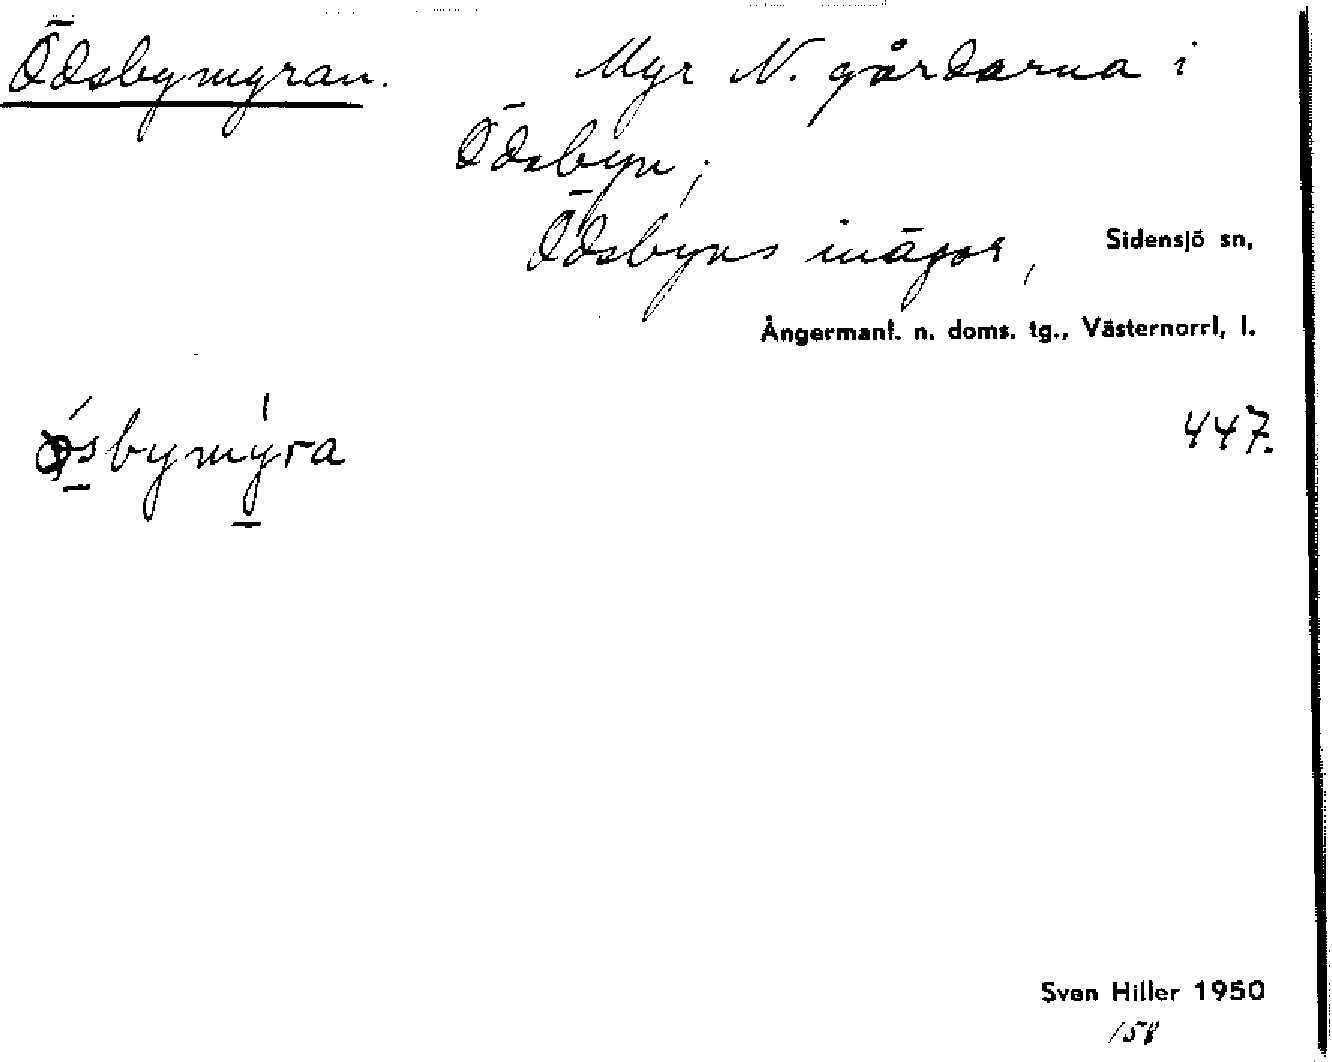 Ödsbymyran. Myr N. gårdarna i
Ödsbyn;
Ödsbyns inägor, Sidensjö sn,
Ångermanl. n. doms. tg., Västernorrl, l.
ǿsbymýra 447.
Sven Hiller 1950
158